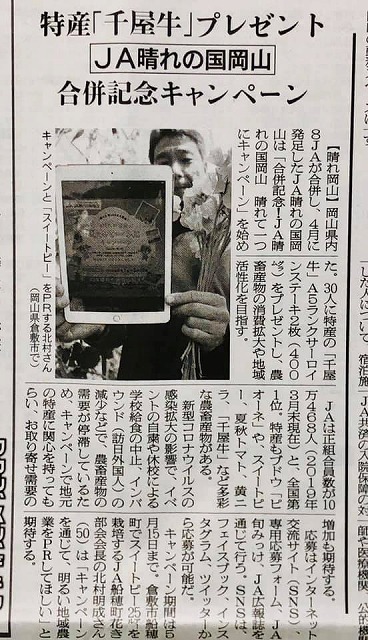 特産「千屋牛」プレゼント
JA晴れの国岡山
合併記念キャンペーン
【晴れ岡山】岡山県内
8JAが合併し、4月に
発足したJA晴れの国岡
山は「合併記念!JA晴
れの国岡山　晴れて一つ
にキャンペーン」を始め
た。30人に特産の「千屋
牛」A5ランクサーロイ
ンステーキ2枚(400
㌘)をプレゼントし、農
畜産物の消費拡大や地域
活性化を目指す。
キャンペーンと「スイートピー」をPRする北村さん
(岡山県倉敷市で)
JAは正組合員数が10
万4468人(2019年
3月末現在)と、全国第
1位。特産もブドウ「ピ
オーネ」や、スイートピ
ー、夏秋トマト、黄ニ
ラ、「千屋牛」など多彩
な農畜産物がある。
新型コロナウイルスの
感染拡大の影響で、イベ
ントの自粛や休校による
学校給食の中止、インバ
ウンド(訪日外国人)の
減少などで、農畜産物の
需要が停滞しているた
め、キャンペーンで地元
の特産に関心を持っても
らい、お取り寄せ需要の
増加も期待する。
応募はインターネット
交流サイト(SNS)
専用応募フォーム、JA
旬みっけ、JA広報誌を
通じて行う。SNSは、
フェイスブック、インス
タグラム、ツイッターか
ら応募が可能だ。
キャンペーン期間は5
月15日まで。倉敷市船穂
町でスイートピー25㌃を
栽培するJA船穂町花き
部会会長の北村明成さん
(50)は「キャンペーン
を通じて、明るい地域農
業をPRしてほしい」と
期待する。